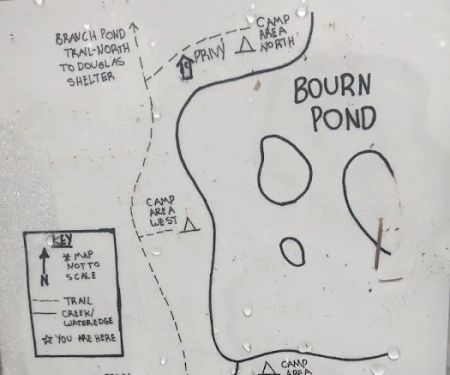 BRANCH POND
TRAIL-NORTH
TO DOUGLAS
SHELTER
CAMP
AREA
NORTH
PRIVY
BOURN
POND
CAMP
AREA
WEST
KEY
N
* MAP
NOT TO
SCALE
TRAIL
CREEK/
WATEREDGE
☆ YOU ARE HERE
CAMP
AREA